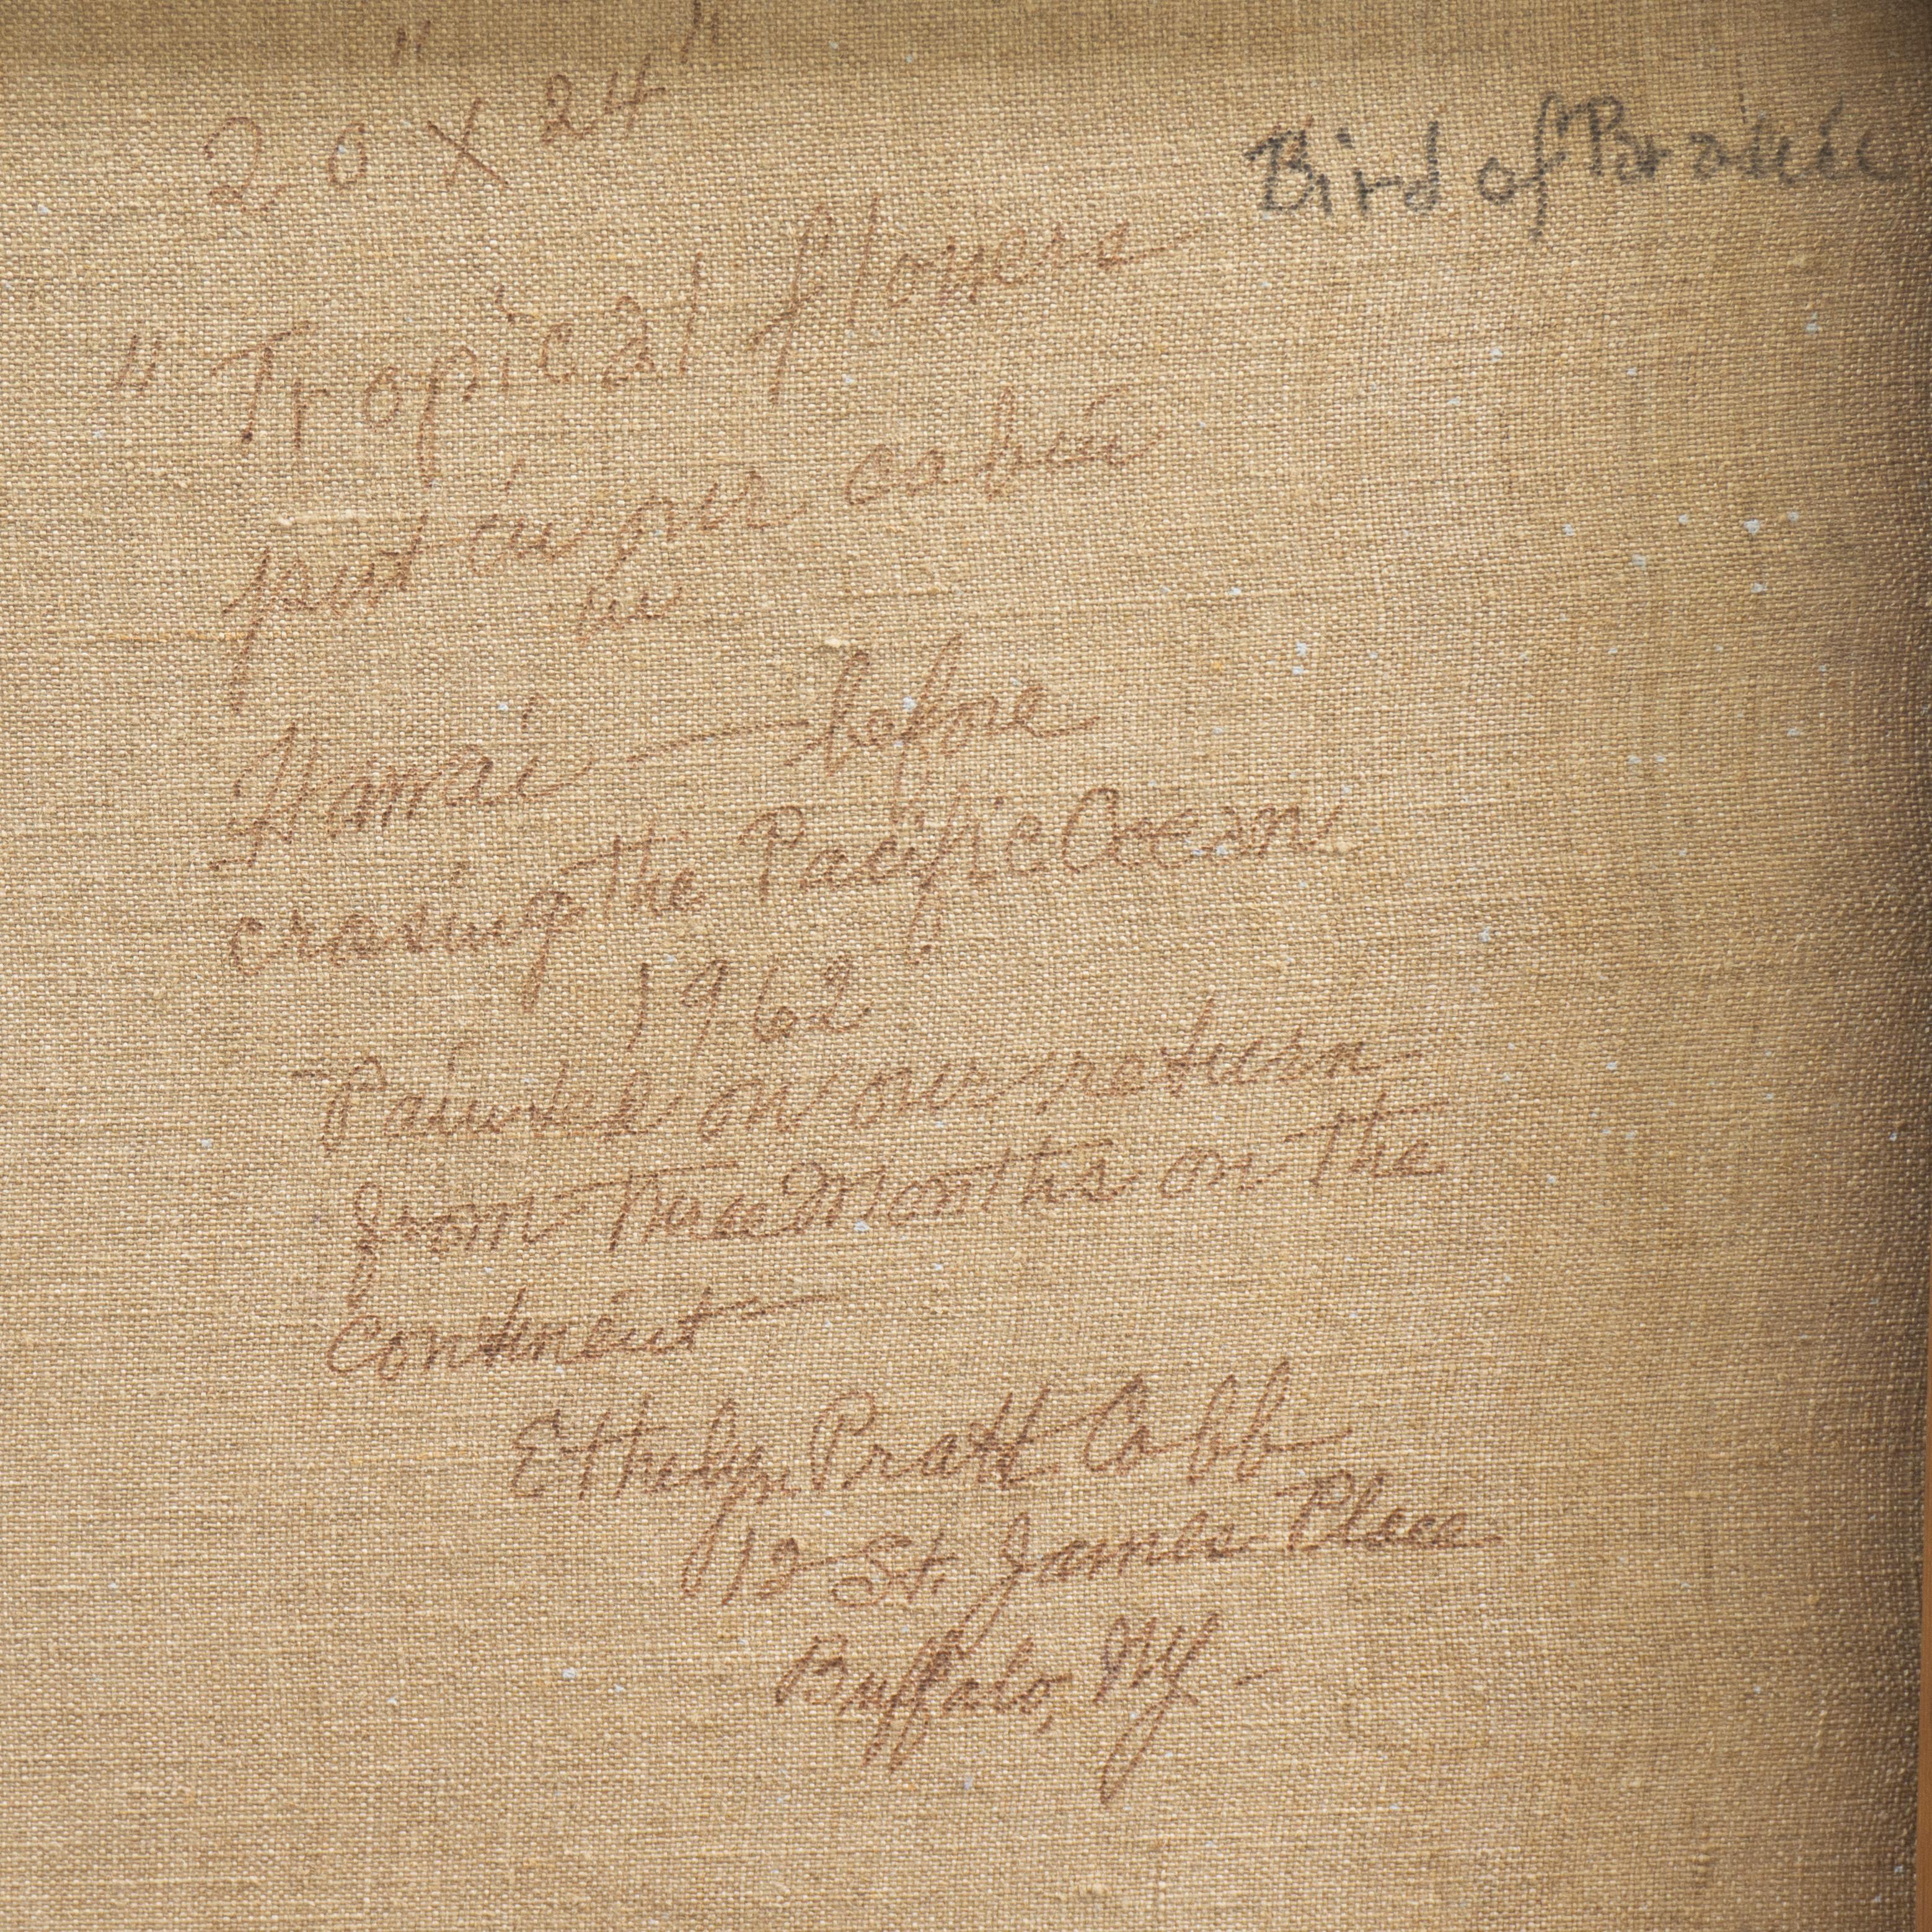 20" x 24"
Bird of Paradise
"Tropical flowers
put in our cabin
in
Hawaii — before
crosing the Pacific Ocean
1962
Painted on our return
from Three Months on the
continent —
Ethelyn Pratt Cobb
12 St. James Place
Buffalo, NY -